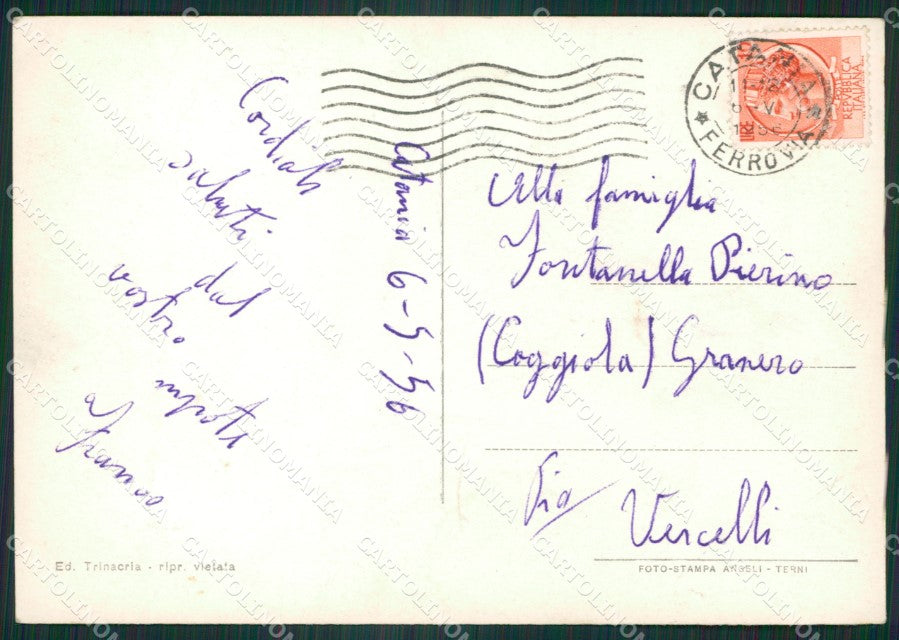 Cordiali
saluti
dal
vostro nipote
Franco
Catania 6-5-56
Alla famiglia
Fontanella Pierino
(Coggiola) Granero
Via
Vercelli
Ed. Trinacria - ripr. vietata
FOTO-STAMPA ANGELI - TERNI
CATANIA
FERROVIA
REPVBBLICA
ITALIANA
CARTOLINOMANIA